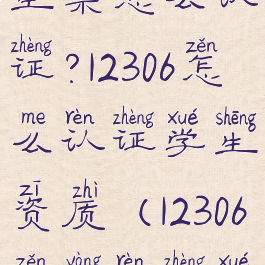 zhèng zěn
证?12306怎
me rèn zhèng xué shēng
么认证学生
zī zhì
资质(12306
zěn yàng rèn zhèng xué